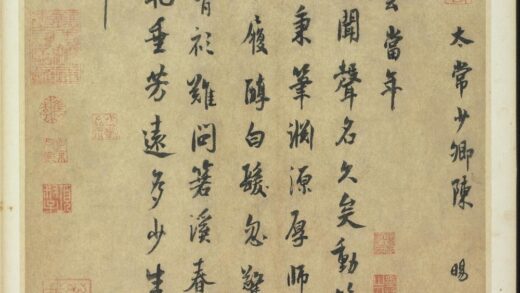 太常少卿陳暘
當年
聞聲名久矣動
秉筆淵源厚師
履醇白髮忽驚
難問箬溪春
垂芳遠多少生